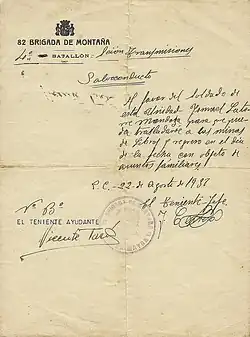 82 BRIGADA DE MONTAÑA
4º BATALLON: Sección Transmisiones
Salvoconducto
A favor del soldado de
esta Unidad Ismael
Mendoza, para que pue-
da trasladarse a las minas
de Libros y regreso en el día
de la fecha con objeto de
asuntos familiares.
P.C. 22 de Agosto de 1937
Vº Bº
EL TENIENTE AYUDANTE
El Teniente Jefe
Vicente